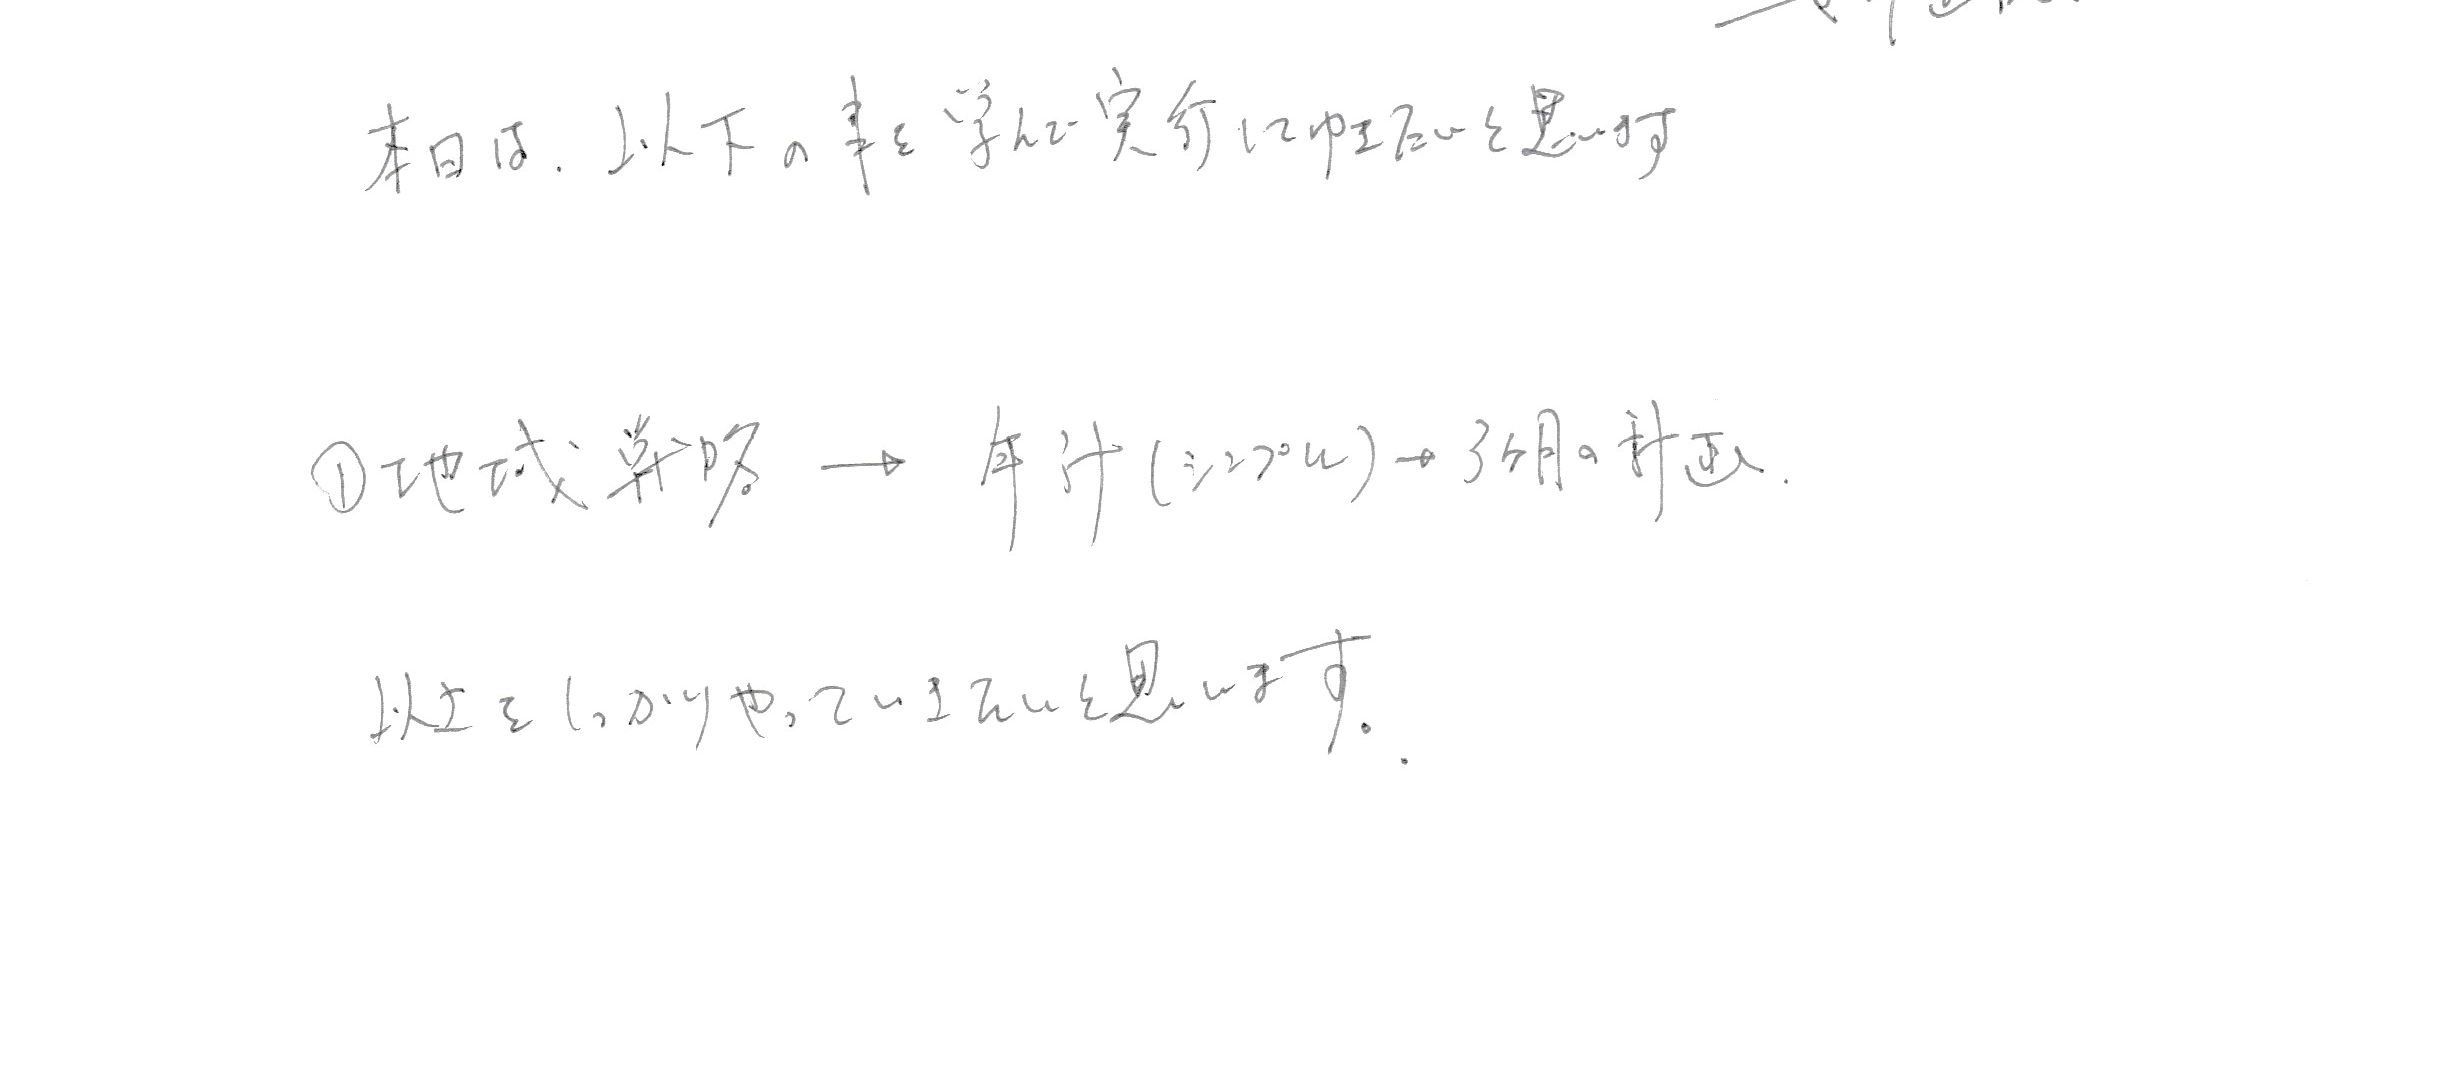 本日は、以下の事を学んで実行してゆきたいと思います
①地域戦略 → 年計(シンプル)→3ヶ月の計画.
以上をしっかりやっていきたいと思います。